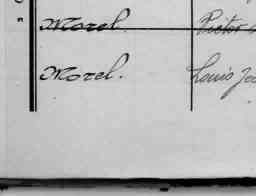 Morel. Victor
Morel. Louis Jo